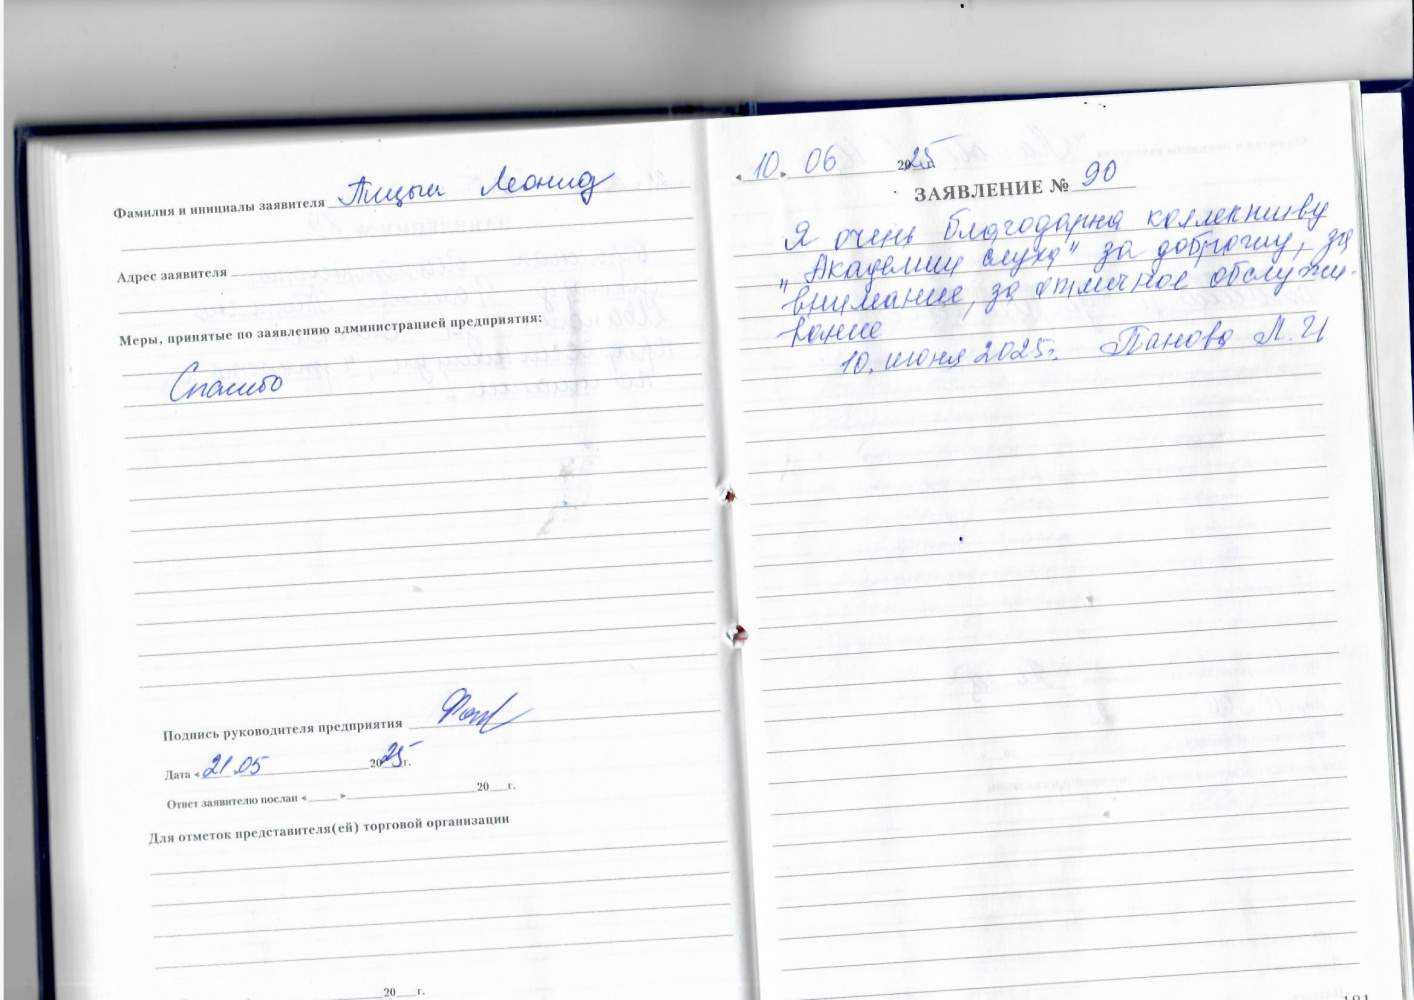 Фамилия и инициалы заявителя Птицын Леонид
Адрес заявителя
Меры, принятые по заявлению администрацией предприятия:
Спасибо
Подпись руководителя предприятия
Дата « 21.05 2025 г.
Ответ заявителю послан « » 20 г.
Для отметок представителя(ей) торговой организации
20 г.
« 10 » 06 2025 г.
ЗАЯВЛЕНИЕ № 90
Я очень благодарна коллективу
"Академии слуха" за доброту, за
внимание, за отличное обслужи-
вание
10. июня 2025г. Панова Л. И